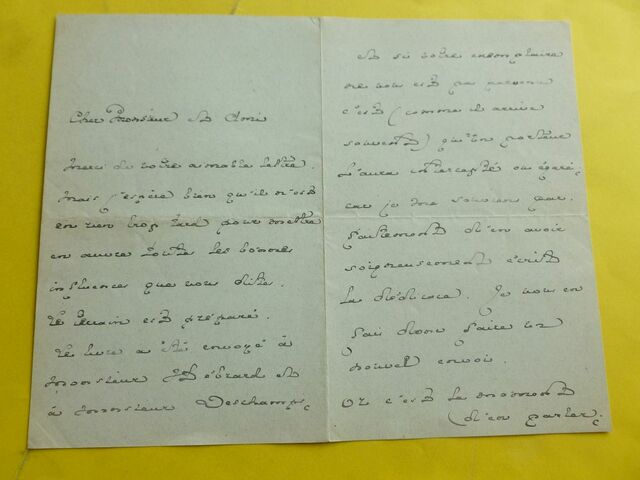 Cher Monsieur et Ami
merci de votre aimable lettre.
mais j'espère bien qu'il n'est
en rien trop tard pour mettre
en œuvre toutes les bonnes
influences que vous dites.
Le terrain est préparé.
Le livre a été envoyé à
monsieur Hébrard et
à monsieur Deschamps,
et si votre exemplaire
ne vous est pas parvenu
c'est (comme il arrive
souvent) qu'un porteur
l'aura intercepté ou égaré,
car je me souviens par-
faitement d'en avoir
soigneusement écrit
la dédicace. Je vous en
fais donc faire un
nouvel envoi.
Or c'est le moment
d'en parler,